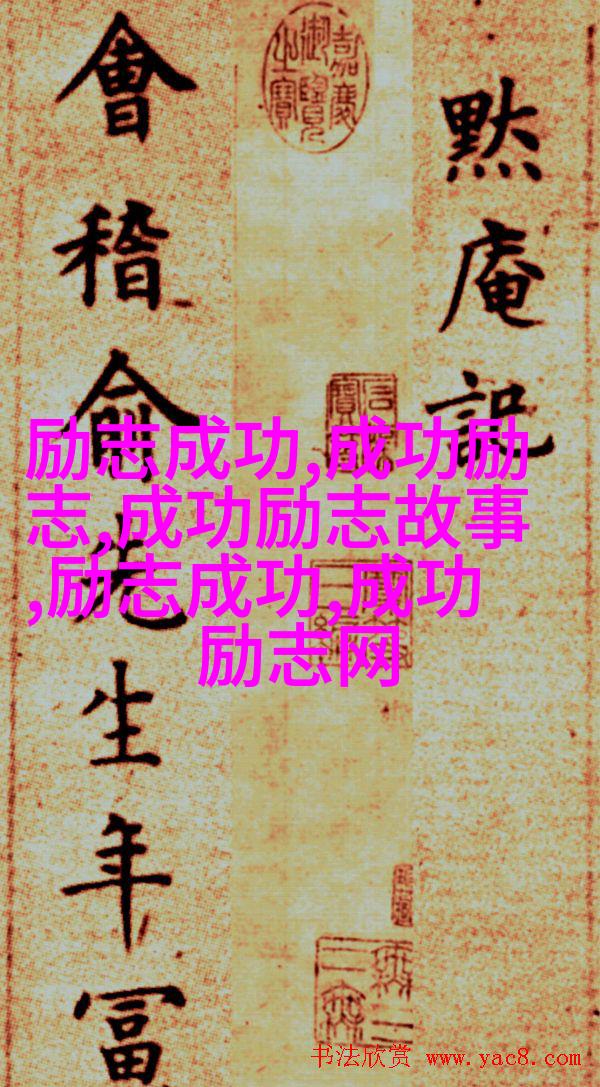 黙庵記
嘉慶御覽之寶
會稽俞先生年冨
励志成功,成功励
志,成功励志故事
,励志成功,成功
励志网
书法欣赏 www.yac8.com